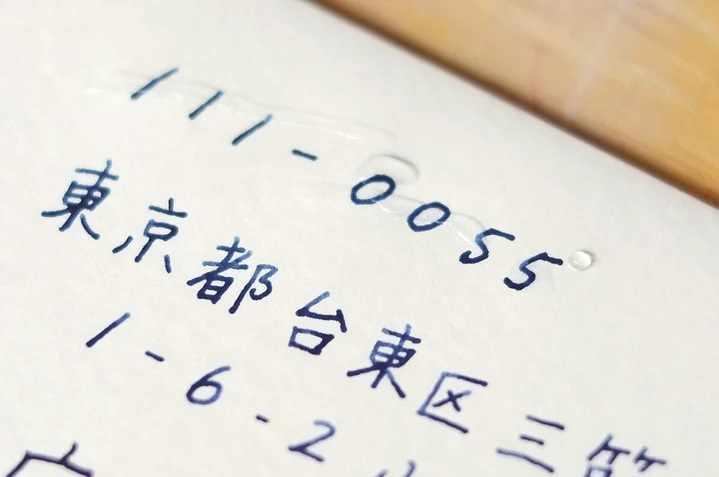 111-0055
東京都台東区三筋
1-6-2